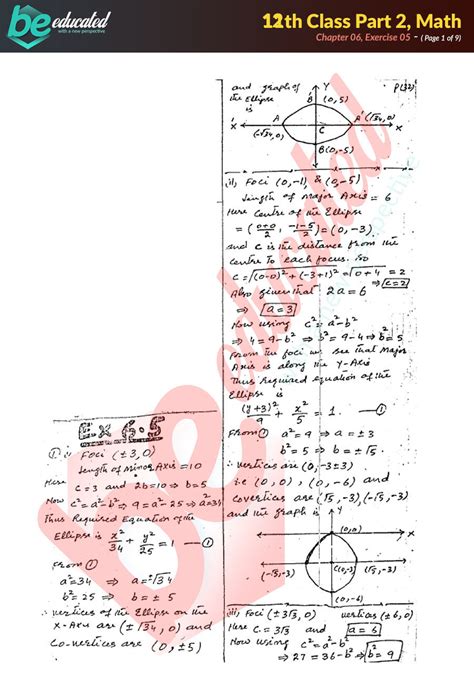 be educated
with a new perspective
12th Class Part 2, Math
Chapter 06, Exercise 05 - ( Page 1 of 9)
Ex 6.5
① i) Foci (±3, 0)
Length of Minor Axis = 10
Here c = 3 and 2b = 10 ⇒ b = 5
Now c² = a² - b² ⇒ 9 = a² - 25 ⇒ a² = 34
Thus Required Equation of the
Ellipse is x²/34 + y²/25 = 1 — ①
From ①
a² = 34 ⇒ a = ±√34
b² = 25 ⇒ b = ± 5
∴ vertices of the Ellipse on the
X-Axis are (±√34, 0) and
Co-vertices are (0, ±5)
and graph of
the Ellipse
is
Y
B (0, 5)
P(32)
X'
A
(-√34, 0)
C
A' (√34, 0)
X
B(0, -5)
ii, Foci (0, -1) & (0, -5)
Length of Major Axis = 6
Here Centre of the Ellipse
= (0+0/2, -1-5/2) = (0, -3)
and C is the distance from the
centre to each focus. So
C = √(0-0)² + (-3+1)² = √0+4 = 2
⇒ C = 2
Also given that 2a = 6
⇒ a = 3
Now using c² = a² - b²
⇒ 4 = 9 - b² ⇒ b² = 9 - 4 ⇒ b² = 5
From the foci we see that Major
Axis is along the Y-Axis
Thus Required equation of the
Ellipse is
(y+3)²/9 + x²/5 = 1. — ①
From ① a² = 9 ⇒ a = ± 3
b² = 5 ⇒ b = ±√5
∴ vertices are (0, -3±3)
i.e (0, 0), (0, -6) and
covertices are (√5, -3), (-√5, -3)
and the graph is
Y
(0,0)
X
(-√5, -3)
C(0,-3)
(√5, -3)
(0, -6)
iii, Foci (±3√3, 0) vertices (±6, 0)
Here C = 3√3 and a = 6
Now Using c² = a² - b²
⇒ 27 = 36 - b² ⇒ b² = 9